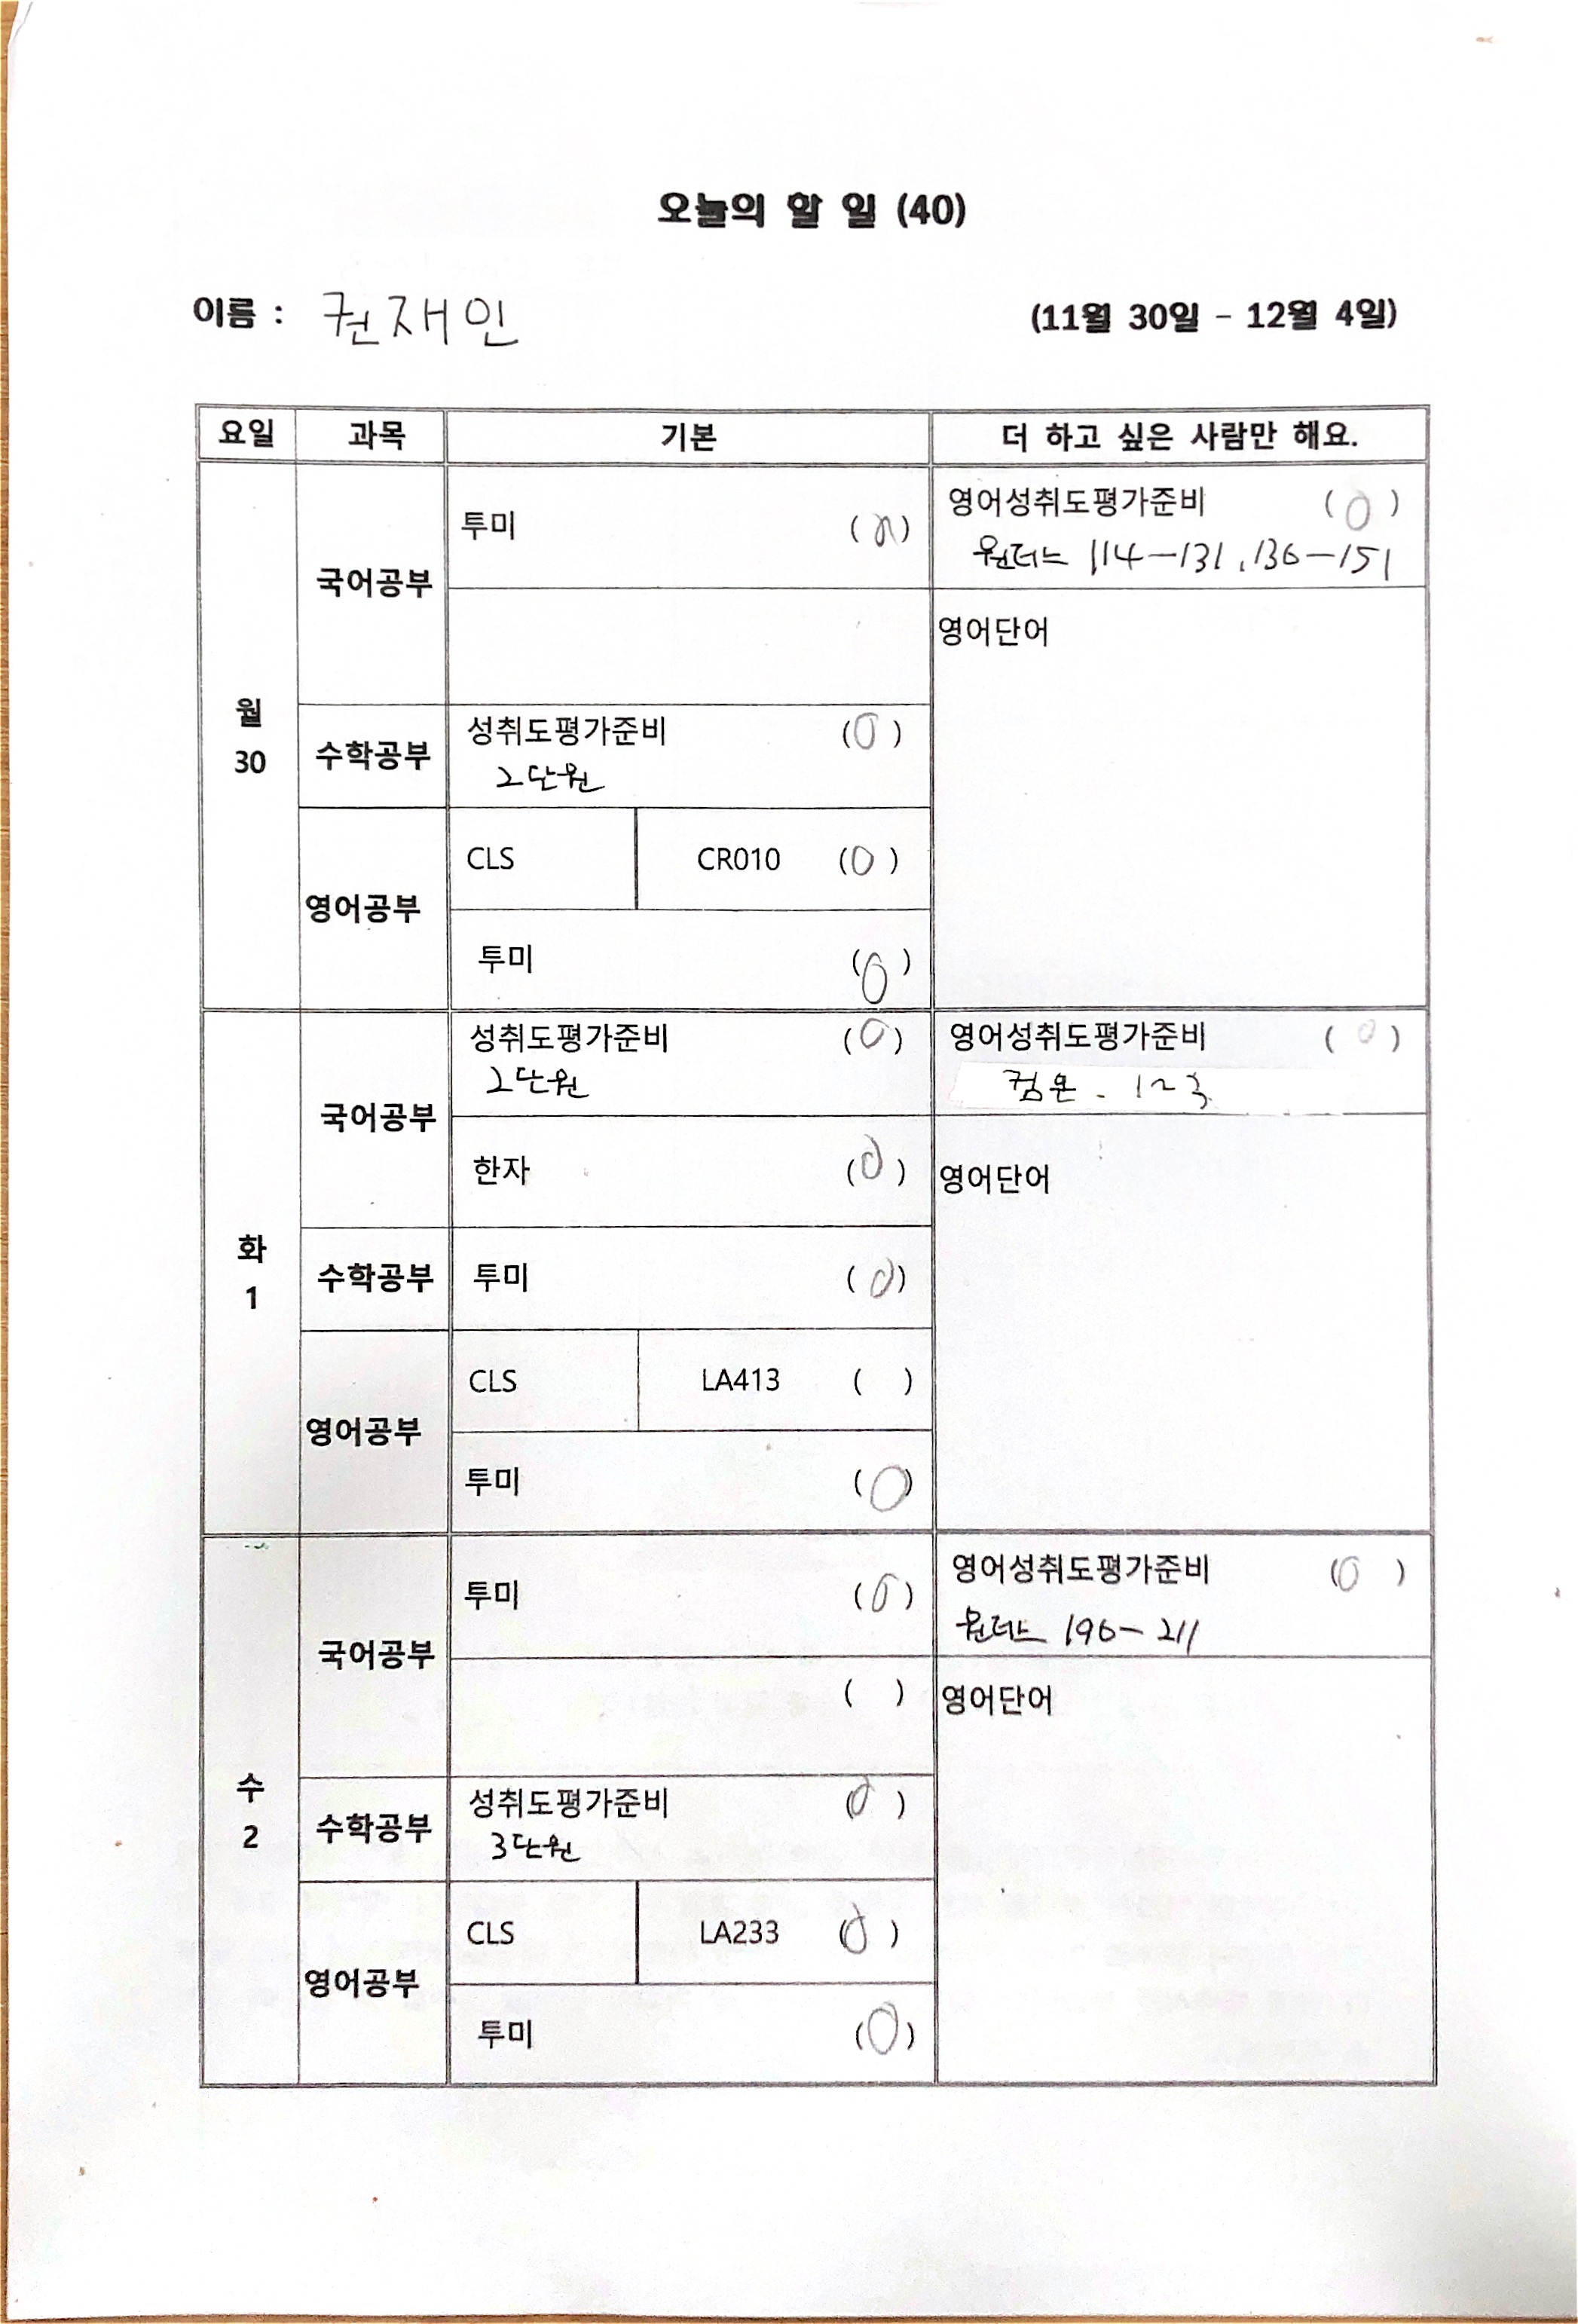 오늘의 할 일 (40)
이름 : 권재인 (11월 30일 - 12월 4일)
요일 과목 기본 더 하고 싶은 사람만 해요.
월
30
국어공부
투미 (0)
영어성취도평가준비 (0)
원더스 114-131, 136-151
영어단어
수학공부
성취도평가준비 (0)
2단원
영어공부
CLS CR010 (0)
투미 (0)
화
1
국어공부
성취도평가준비 (0)
2단원
영어성취도평가준비 (0)
1~3
한자 (0)
영어단어
수학공부
투미 (0)
영어공부
CLS LA413 ( )
투미 (0)
수
2
국어공부
투미 (0)
영어성취도평가준비 (0)
원더스 196-211
( )
영어단어
수학공부
성취도평가준비 (0)
3단원
영어공부
CLS LA233 (0)
투미 (0)